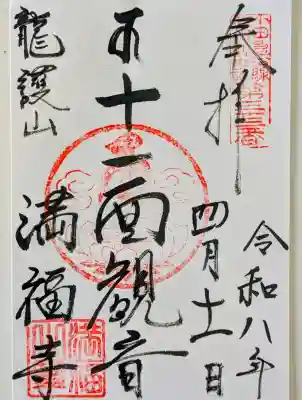 奉拝
令和八年
四月十一日
十一面観音
龍護山
満福寺